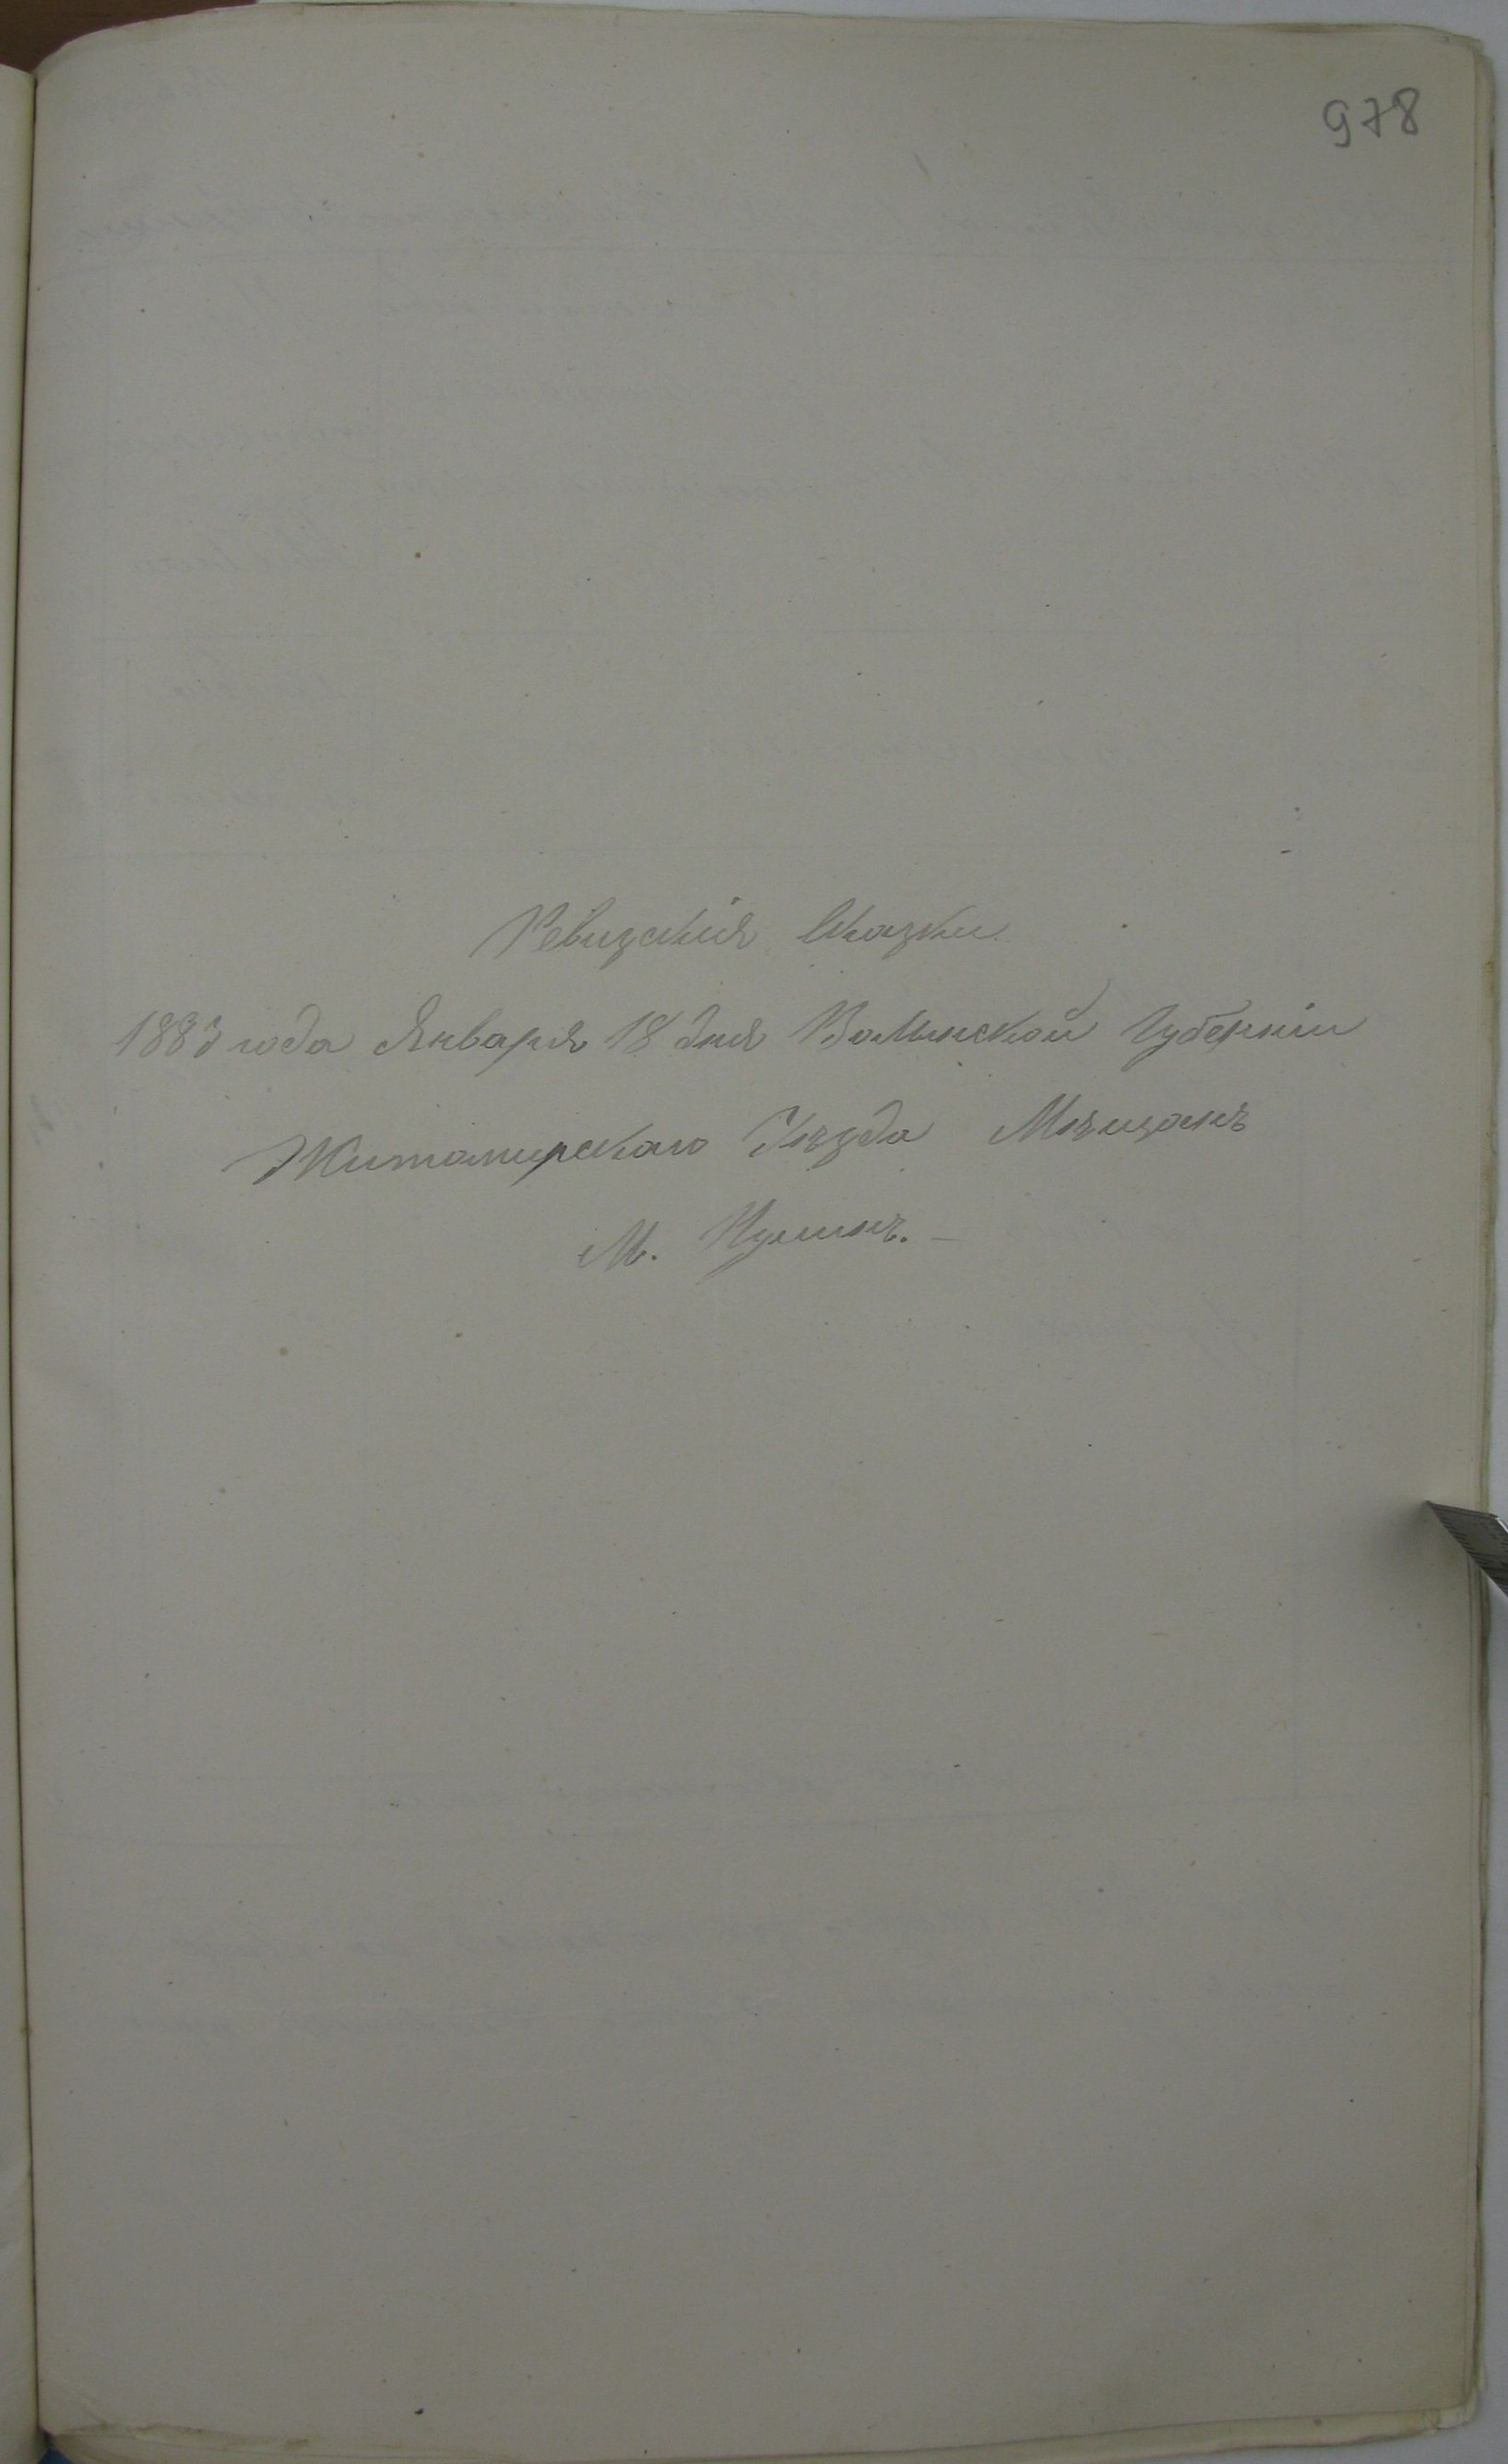 978
Ревизскія Сказки
1883 года Января 18 дня Волынской Губерніи
Житомирскаго Уѣзда Мѣщанъ
М. Пулинъ.